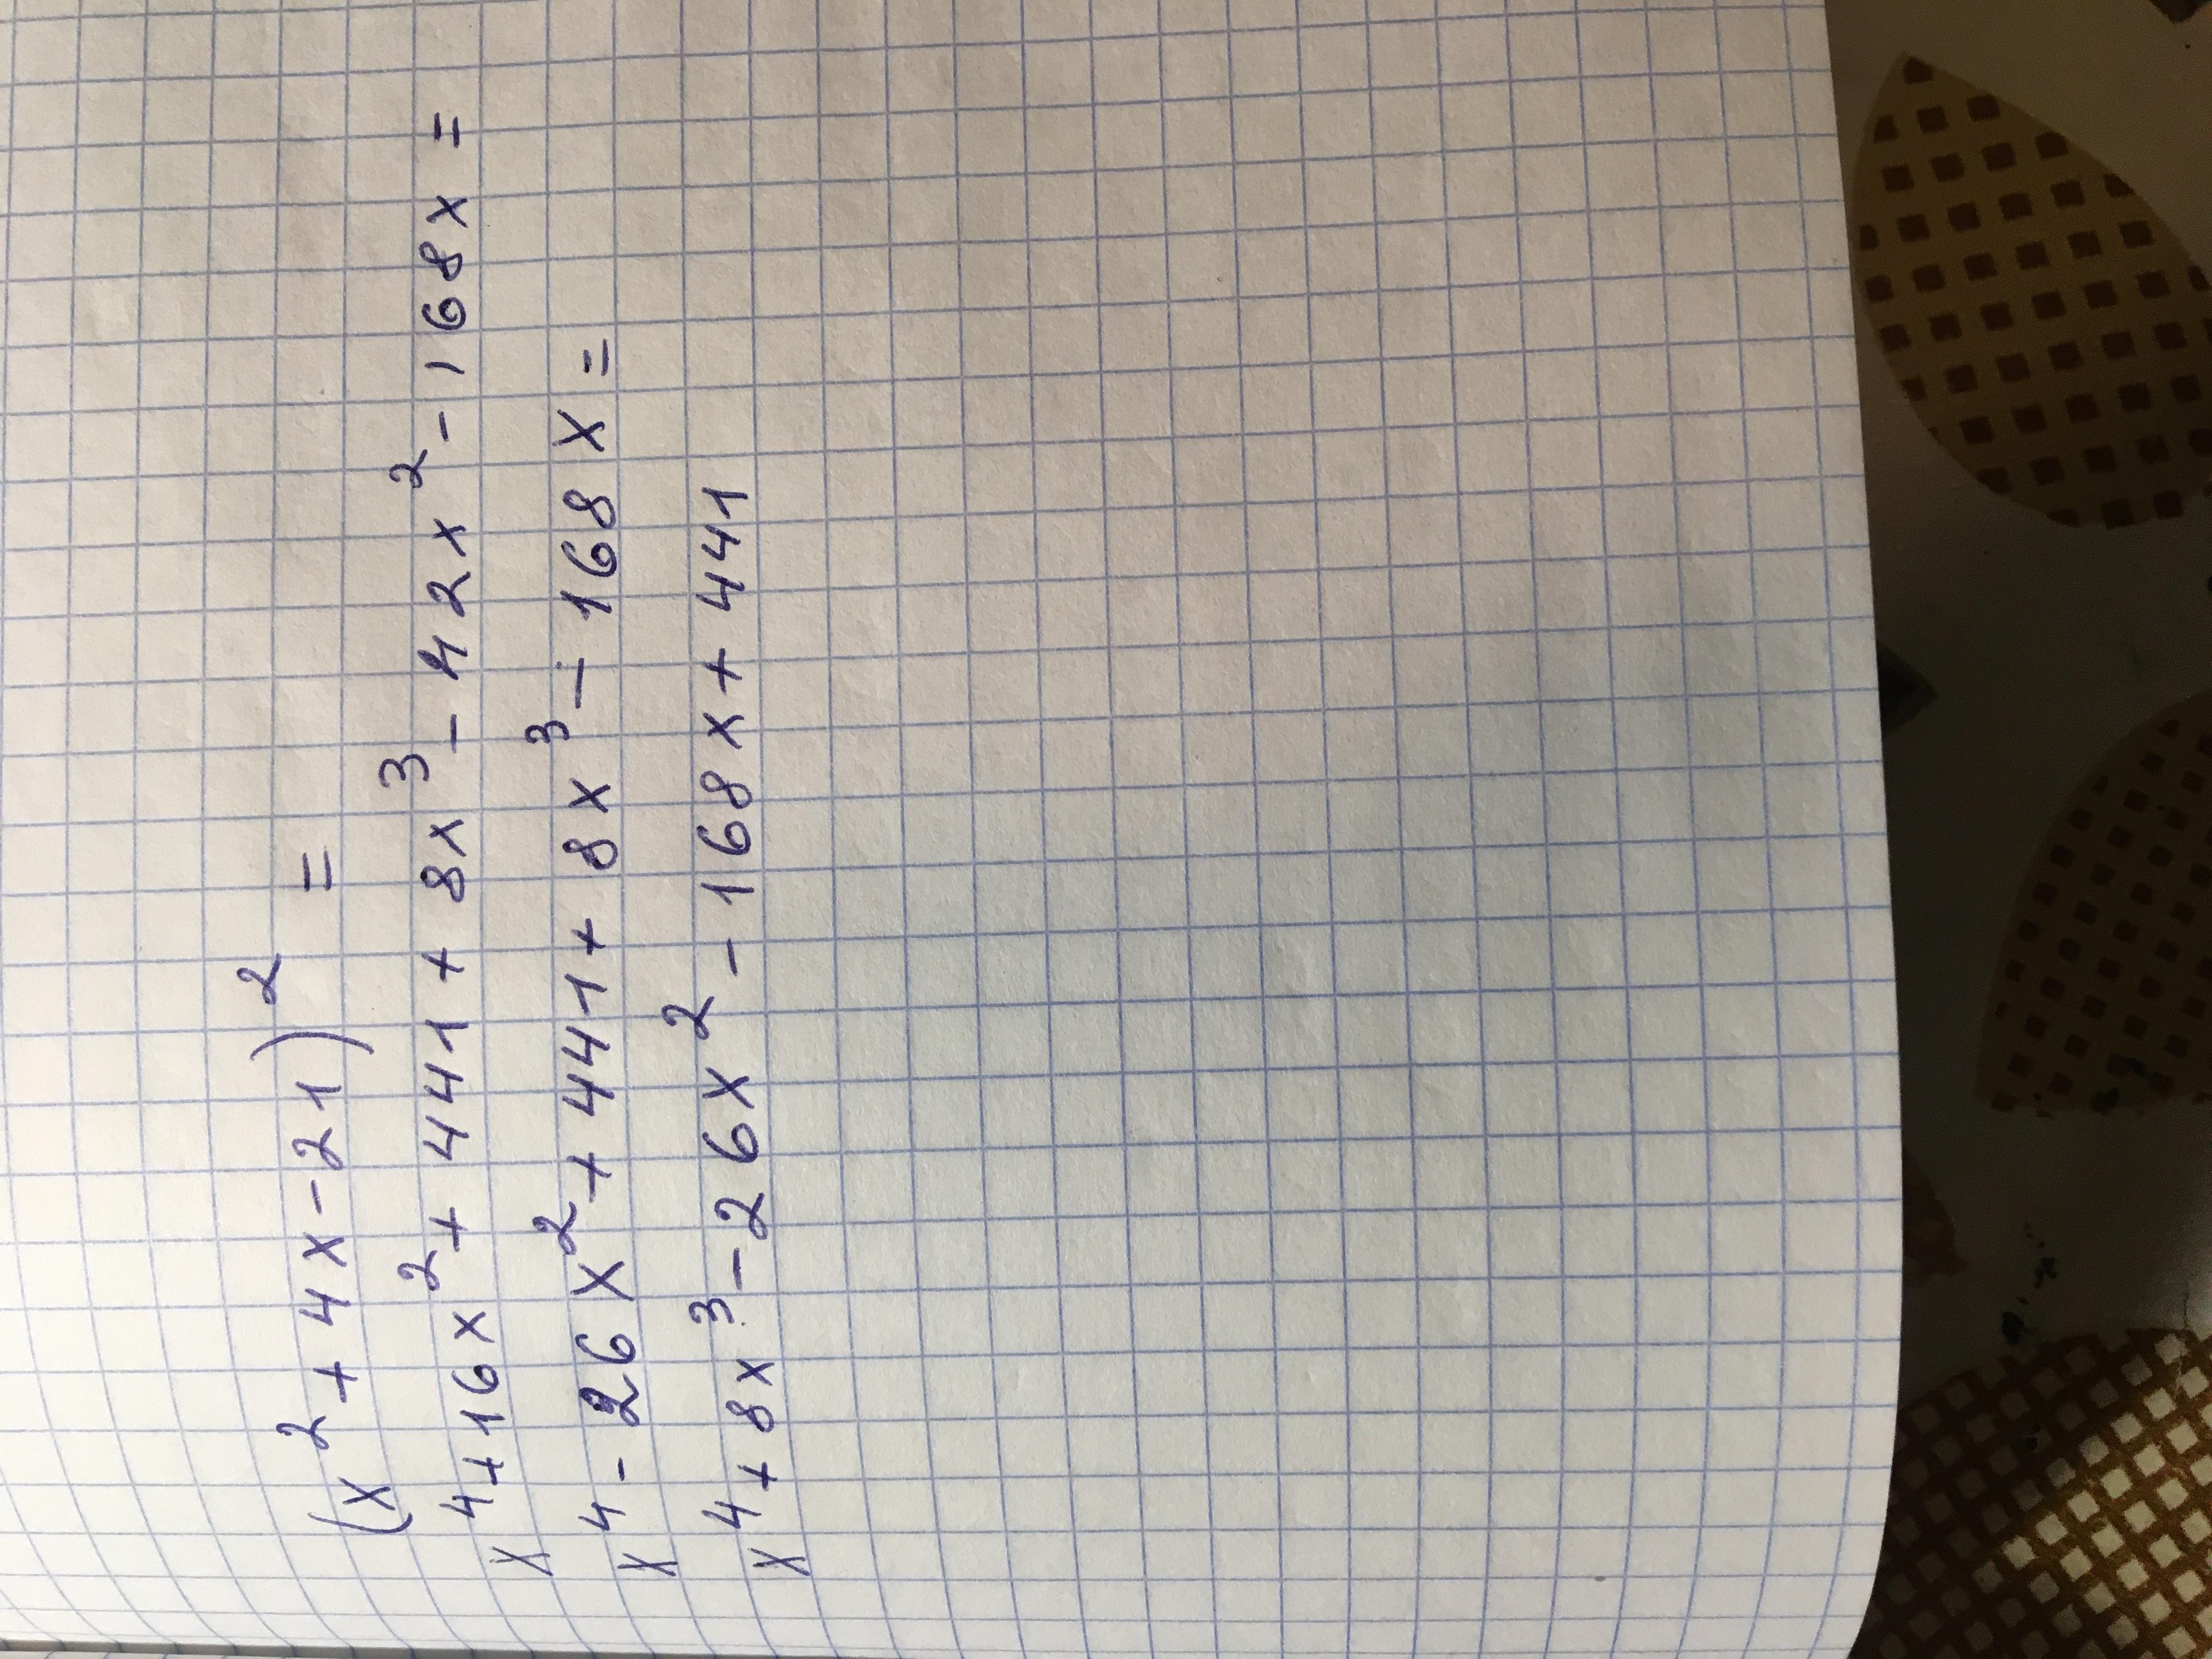 (x²+4x-21)² =
x⁴+16x²+441+8x³-42x²-168x=
x⁴-26x²+441+8x³-168x=
x⁴+8x³-26x²-168x+441